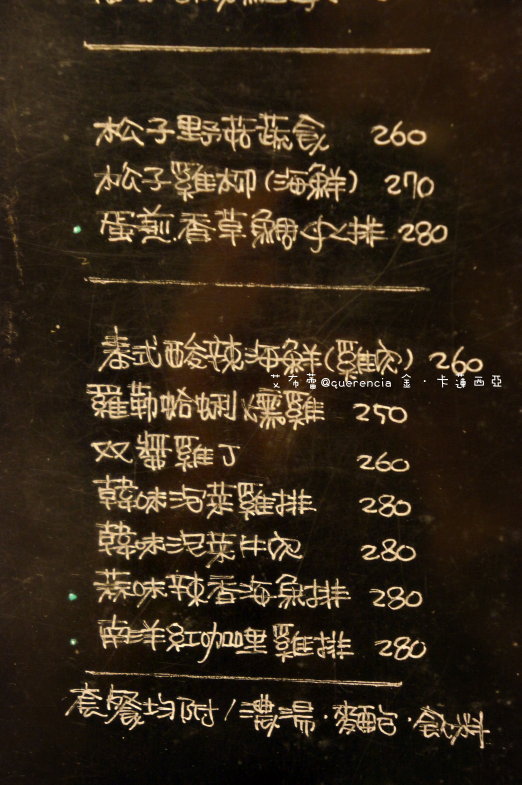 松子野菇蔬食 260
松子雞柳(海鮮) 270
蛋煎.香草鯛魚排 280
泰式酸辣海鮮(雞肉) 260
艾布蕾@querencia 金‧卡蓮西亞
羅勒蛤蜊燻雞 250
双醬雞丁 260
韓味泡菜雞排 280
韓味泡菜牛肉 280
蒜味辣香海魚排 280
南洋紅咖哩雞排 280
套餐均附/濃湯‧麵包‧飲料